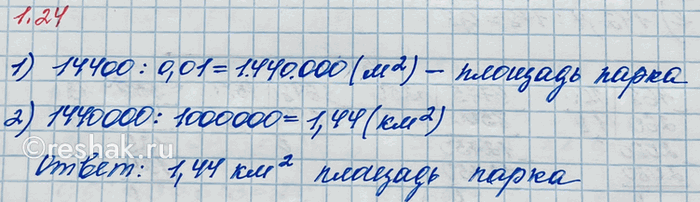 1.24
1) 14400 : 0,01 = 1.440.000 (м²) – площадь парка
2) 1440000 : 1000000 = 1,44 (км²)
Ответ: 1,44 км² площадь парка
reshak.ru